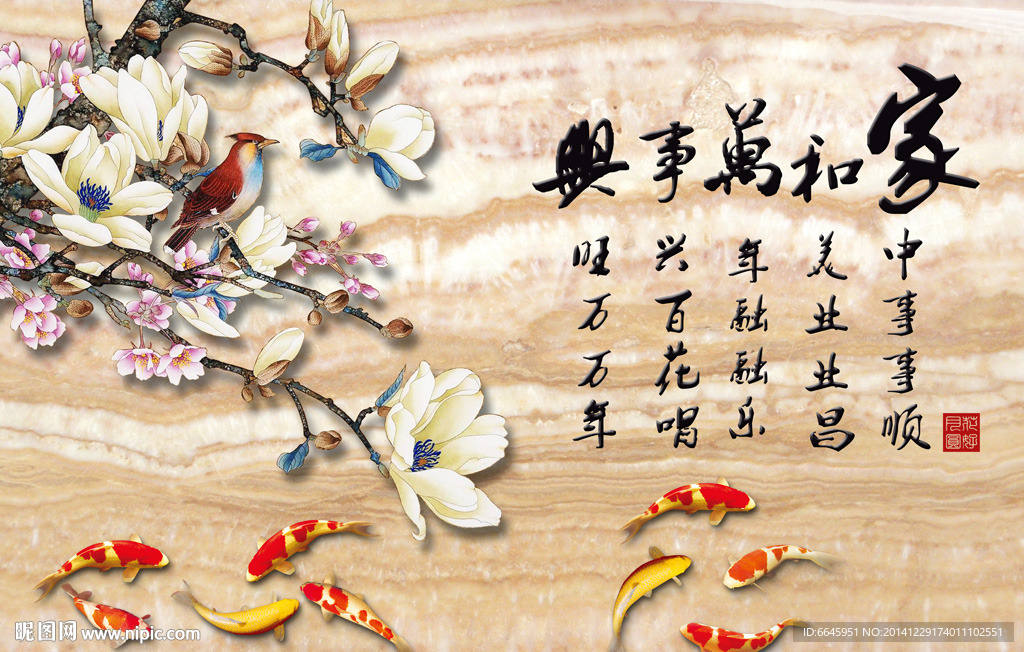 家和萬事興
中事事顺
美业业昌
年融融乐
兴百花唱
旺万万年
花好月圆
昵图网 www.nipic.com
ID:6645951 NO:20141229174011102551